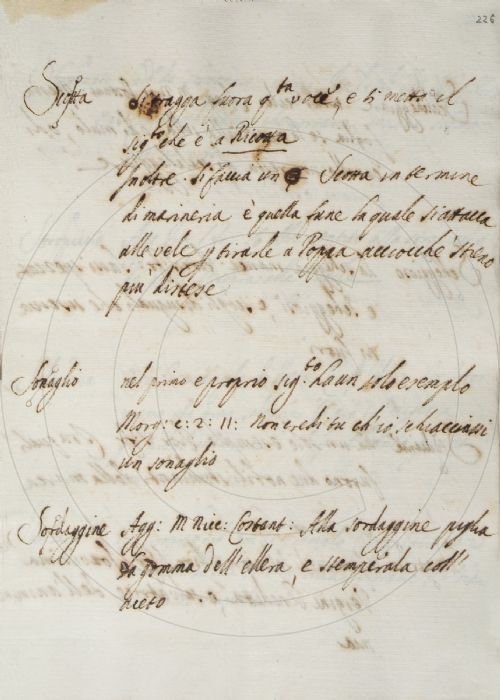 226
Scotta Si tragga fuora q.ta voce, e si metta il
sig.to che è a Ricotta
Inoltre. Si faccia un § Scotta in termine
di marineria è quella fune la quale si attacca
alle vele p tirarle a Poppa acciocchè stieno
più distese
Sonaglio nel primo e proprio sig.to ha un solo esempio
Morg: c: 2: 11: Non credi tu ch'io schiacciassi
un sonaglio
Sordaggine Agg: M Nic: Costant: Alla sordaggine piglia
la gomma dell'ellera, e stemperala coll'
aceto